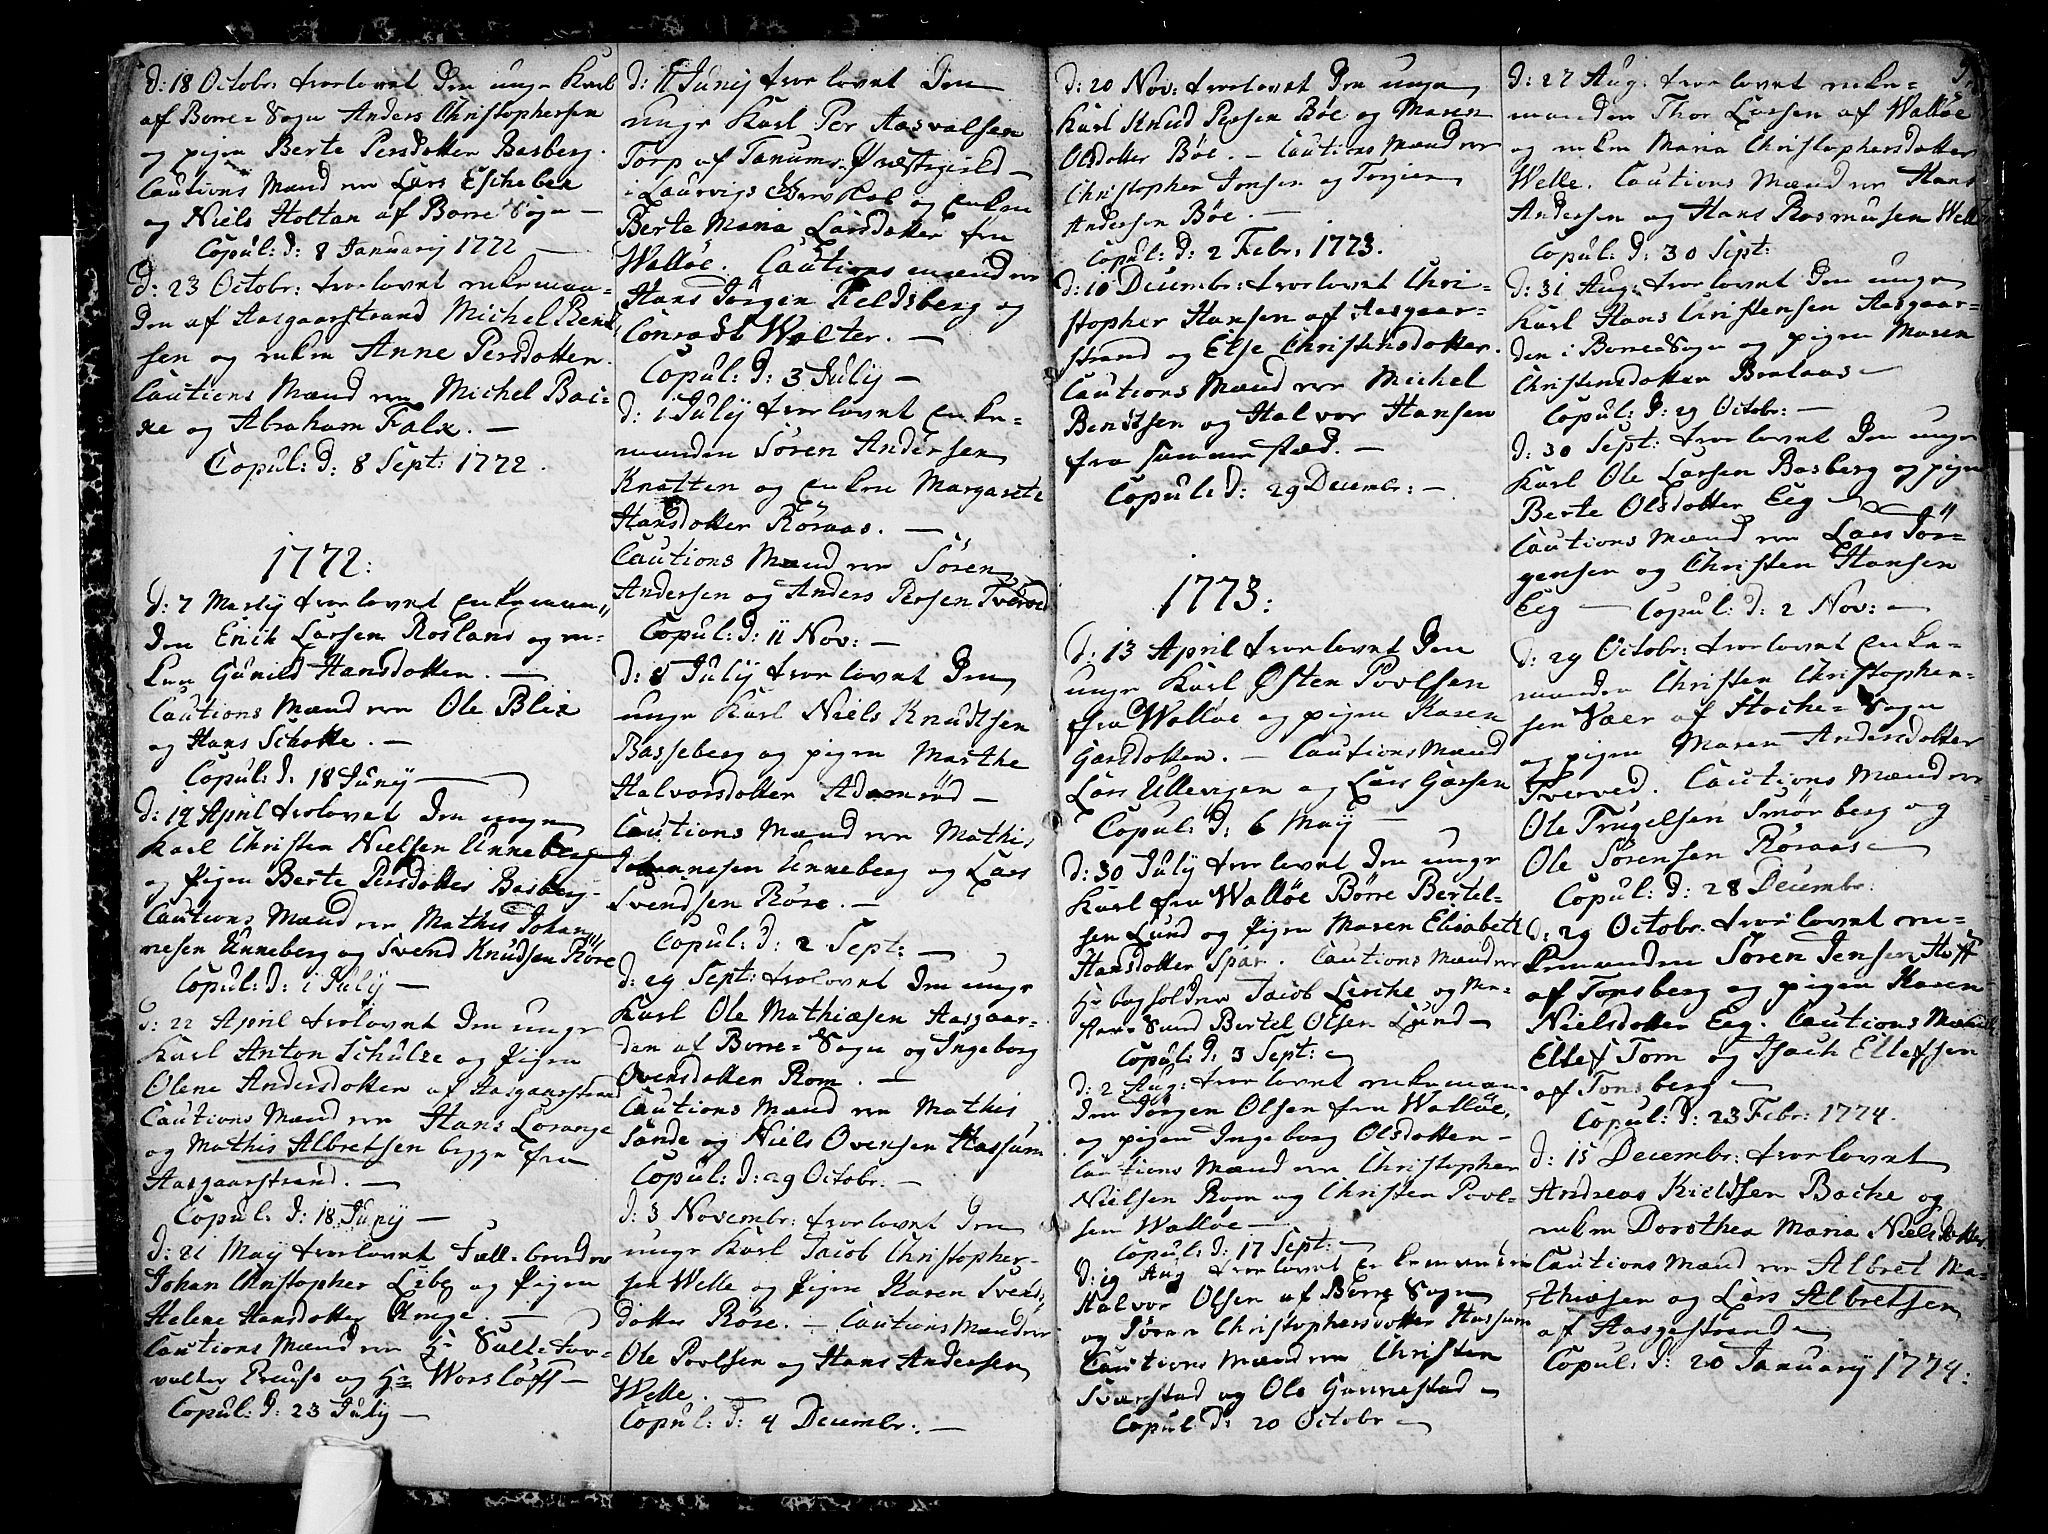 d: 18 Octobr: trolovet den unge Karl
af Borre-Sogn Anders Christophersen
og pigen Berte Persdotter Basberg.
Cautions Mænd ere Lars Eschebek
og Niels Holtan af Borre Sogn —
Copul: d: 8 Januarij 1772 —
d: 23 Octobr: trolovet enkeman-
den af Aasgaarstrand Michel Bent
sen og enken Anne Persdotter.
Cautions Mænd ere Michel Bac-
ke og Abraham Falk. —
Copul: d: 8 Sept: 1772.
1772:
d: 7 Martij trolovet enkeman"
den Erich Larsen Rosland og en-
ken Gunild Hansdotter. —
Cautions Mænd ere Ole Blix
og Hans Schotte. —
Copul: d: 18 Junij —
d: 12 April trolovet den unge
Karl Christen Nielsen Unneberg
og Pigen Berte Persdotter Basberg.
Cautions Mænd ere Mathis Johan"
nesen Unneberg og Svend Knudsen Röre
Copul: d: 1 Julij —
d: 22 April trolovet den unge
Karl Anton Schulze og Pigen
Olene Andersdotter af Aasgaarstrand
Cautions Mænd ere Hans Lorange
og Mathis Albretsen begge fra
Aasgaarstrand. —
Copul: d: 18 Junij —
d: 21 Maij trolovet
Johan Christopher Liby og Pigen
Helene Hansdotter —
Cautions Mænd ere Hr Salt-For-
valter Preuss og Hr Worsløff —
Copul: d: 23 Julij —
d: 11 Junij trolovet den
unge Karl Per Aasvalsen
Torp af Tanums Præstegield —
i Laurvigs Grevskab og enken
Berte Maria Larsdotter fra
Walløe. Cautions mænd ere
Hans Jörgen Feldsberg og
Conradt Walter. —
Copul: d: 3 Julij —
d: 1 Julij trolovet enke-
manden Sören Andersen
Knatten og enken Margarete
Hansdotter Röraas. —
Cautions Mænd ere Sören
Andersen og Anders Persen Tverved
Copul: d: 11 Nov: —
d: 8 Julij trolovet den
unge Karl Niels Knudtsen
Basseberg og pigen Marthe
Halvorsdotter Adamröd —
Cautions Mænd ere Mathis
Johannesen Unneberg og Lars
Svendsen Röre. —
Copul: d: 2 Sept: —
d: 29 Sept: trolovet den unge
Karl Ole Mathiæsen Aasgaar-
den af Borre-Sogn og Ingeborg
Ovensdotter Rom. —
Cautions Mænd ere Mathis
Sande og Niels Ovensen Hassum
Copul: d: 29 Octobr: —
d: 3 Novembr: trolovet den
unge Karl Jacob Christopher-
sen Welle og Pigen Karen Svends
dotter Röre. — Cautions Mænd ere
Ole Povlsen og Hans Andersen
Welle.
Copul: d: 4 Decembr: —
d: 20 Nov: trolovet den unge
Karl Knud Persen Böe og Maren
Olsdotter Böe. — Cautions Mænd ere
Christopher Jonsen og Torgier
Andersen Böe. —
Copul: d: 2 Febr: 1773.
d: 10 Decembr: trolovet Chri-
stopher Hansen af Aasgaar-
strand og Else Christensdotter.
Cautions Mænd ere Michel
Bendtsen og Halvor Hansen
fra samme stæd. —
Copul: d: 29 Decembr: —
1773:
d: 13 April trolovet den
unge Karl Østen Povlsen
fra Walløe og pigen Karen
Garsdotter. — Cautions Mænd
Lars Ullevigen og Lars Garsen
Copul: d: 6 Maij —
d: 30 Julij trolovet den unge
Karl fra Walløe Börre Bertel-
sen Lund og Pigen Maren Elisabett
Hansdotter Spar. Cautions Mænd ere
Hr bogholder Jacob Lerche og
Bertel Olsen Lund —
Copul: d: 3 Sept: —
d: 2 Aug: trolovet enkeman-
den Jörgen Olsen fra Walløe,
og pigen Ingeborg Olsdotter —
Cautions Mænd ere Christopher
Nielsen Rom og Christen Povl-
sen Walløe —
Copul: d: 17 Sept: —
d: 19 Aug trolovet enkemanden
Halvor Olsen af Borre Sogn
og Sören Christophersdotter Hassum
Cautions Mænd ere Christen
Svarstad og Ole Gunnestad —
Copul: d: 20 Octobr —
d: 27 Aug: trolovet enke-
manden Thor Larsen af Walløe
og enken Maria Christophersdotter
Welle. Cautions Mænd ere Hans
Andersen og Hans Rasmusen Welle
Copul: d: 30 Sept:
d: 31 Aug: trolovet den unge
Karl Hans Christensen Aasgaar-
den i Borre Sogn og pigen Maren
Christensdotter Braaaas —
Copul: d: 29 Octobr: —
d: 30 Sept: trolovet den unge
Karl Ole Larsen Basberg og pigen
Berte Olsdotter Eeg —
Cautions Mænd ere Lars Jör-
gensen og Christen Hansen
Eeg — Copul: d: 2 Nov: —
d: 29 Octobr: trolovet enke-
manden Christen Christopher-
sen Væer af Stocke-Sogn
og pigen Maren Andersdotter
Tverved. Cautions Mænd ere
Ole Trugelsen Smörberg og
Ole Sörensen Röraas —
Copul: d: 28 Decembr:
d: 29 Octobr: trolovet en-
kemanden Sören Jensen Hoff
af Tonsberg og pigen Karen
Nielsdotter Eeg. Cautions Mænd
Ellef Tom og Isach Ellefsen
af Tonsberg —
Copul: d: 23 Febr: 1774.
d: 15 Decembr: trolovet
Andreas Kieldsen Bache og
enken Dorothea Maria Nielsdotter
Cautions Mænd ere Albret Ma-
thiæsen og Lars Albretsen
af Aasgestrand —
Copul: d: 20 Januarij 1774: